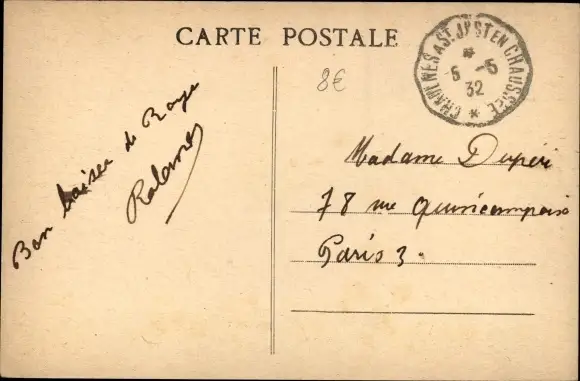 CARTE POSTALE
CHAULNES A ST JUST EN CHAUSSEE
6 -5
32
8€
Bon baiser de Roye
Madame Dupéri
78 rue Quincampoix
Paris 3.